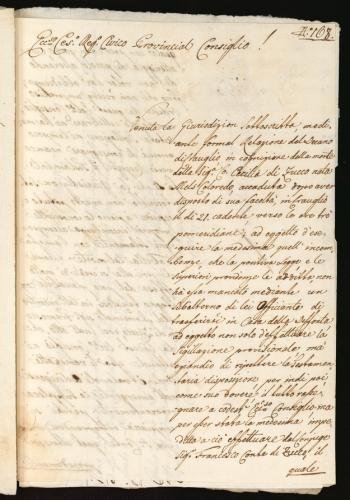 N.° 768.
Ecc.so Ces.o Reg.o Civico Provincial Consiglio!
Venuta la Giurisdizion Sottoscritta, medi-
ante formal Relazione del Decano
di Trauglio, in cognizione della morte
della Sig.ra Co: Cecilia di Zucco nata
Mels Colloredo, accaduta dopo aver
disposto di sua facoltà, in Trauglio
il dì 21. cadente verso le ore tre
pomeridiane; ad oggetto d'ese-
guire la medesima quell'incom-
benze, che la positiva Legge e le
Superiori providenze le additta, non
hà essa mancato mediante un
Subalterno di lei Officiante di
trasferirsi in Casa della Deffonta
ad oggetto non solo d'effettuare la
Sigillazione provisionale, mà
quando di ripettere la Testamen-
taria disposizione per indi poi
come suo dovere il tutto rasse-
gnare a codest' Ecc.so Consiglio; ma
per esser stata la medesima impe-
dita a ciò effettuare dal Conjuge
Sig.r Francesco Conte di Zucco, il
quale